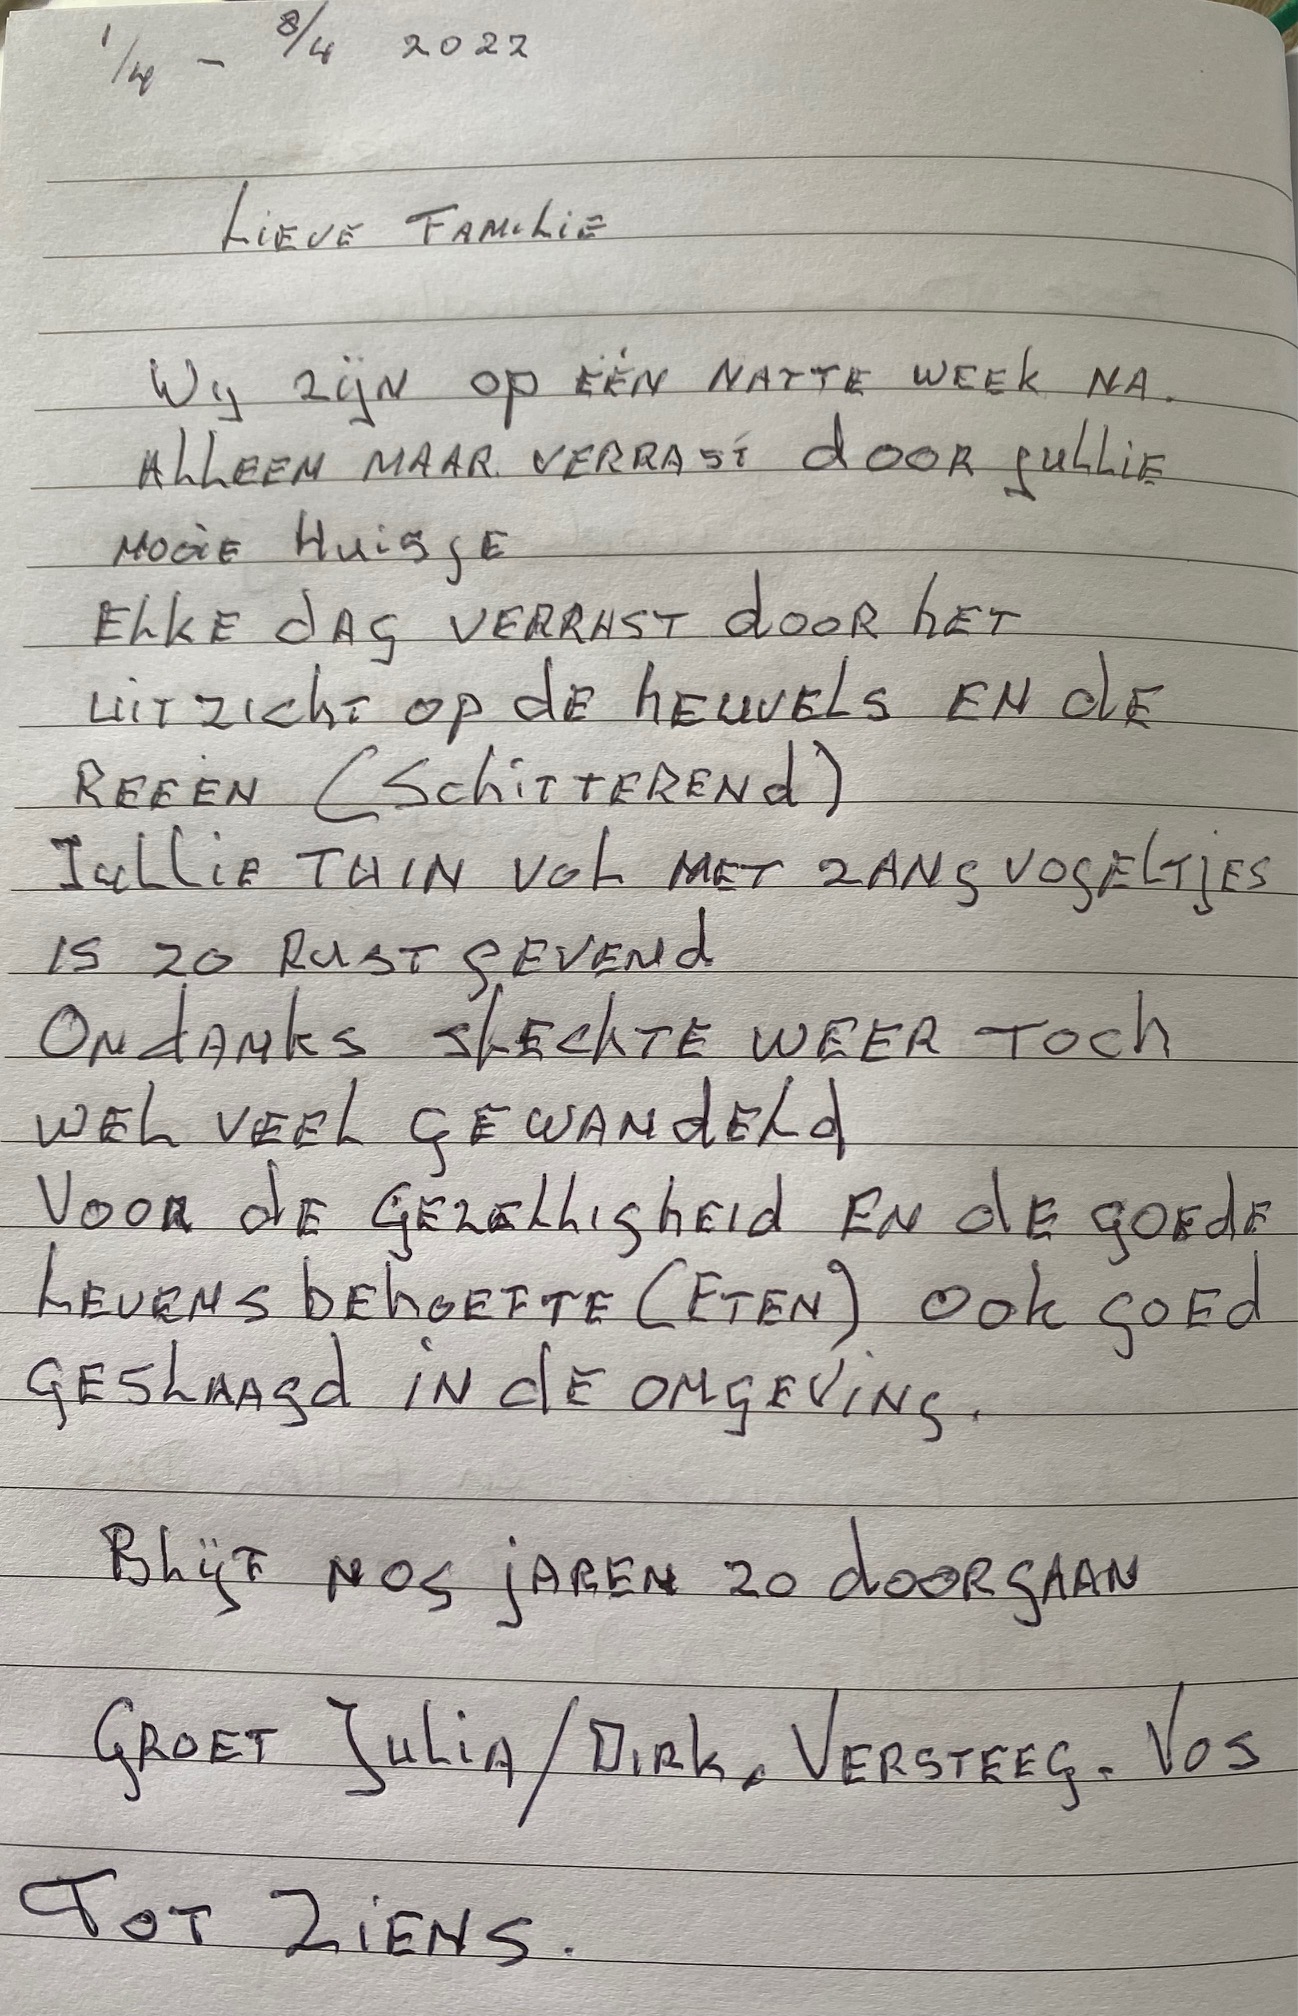 1/4 - 8/4 2022
Lieve Familie
Wij zijn op één natte week na.
Alleen maar verrast door jullie
mooie Huisje
Elke dag verrast door het
uitzicht op de heuvels en de
Reeën (Schitterend)
Jullie Tuin vol met zangvogeltjes
is zo Rustgevend
Ondanks slechte weer toch
wel veel gewandeld
Voor de Gezelligheid en de goede
Levensbehoefte (Eten) ook goed
geslaagd in de omgeving.
Blijf nog jaren zo doorgaan
Groet Julia/Dirk. Versteeg-Vos
Tot Ziens.